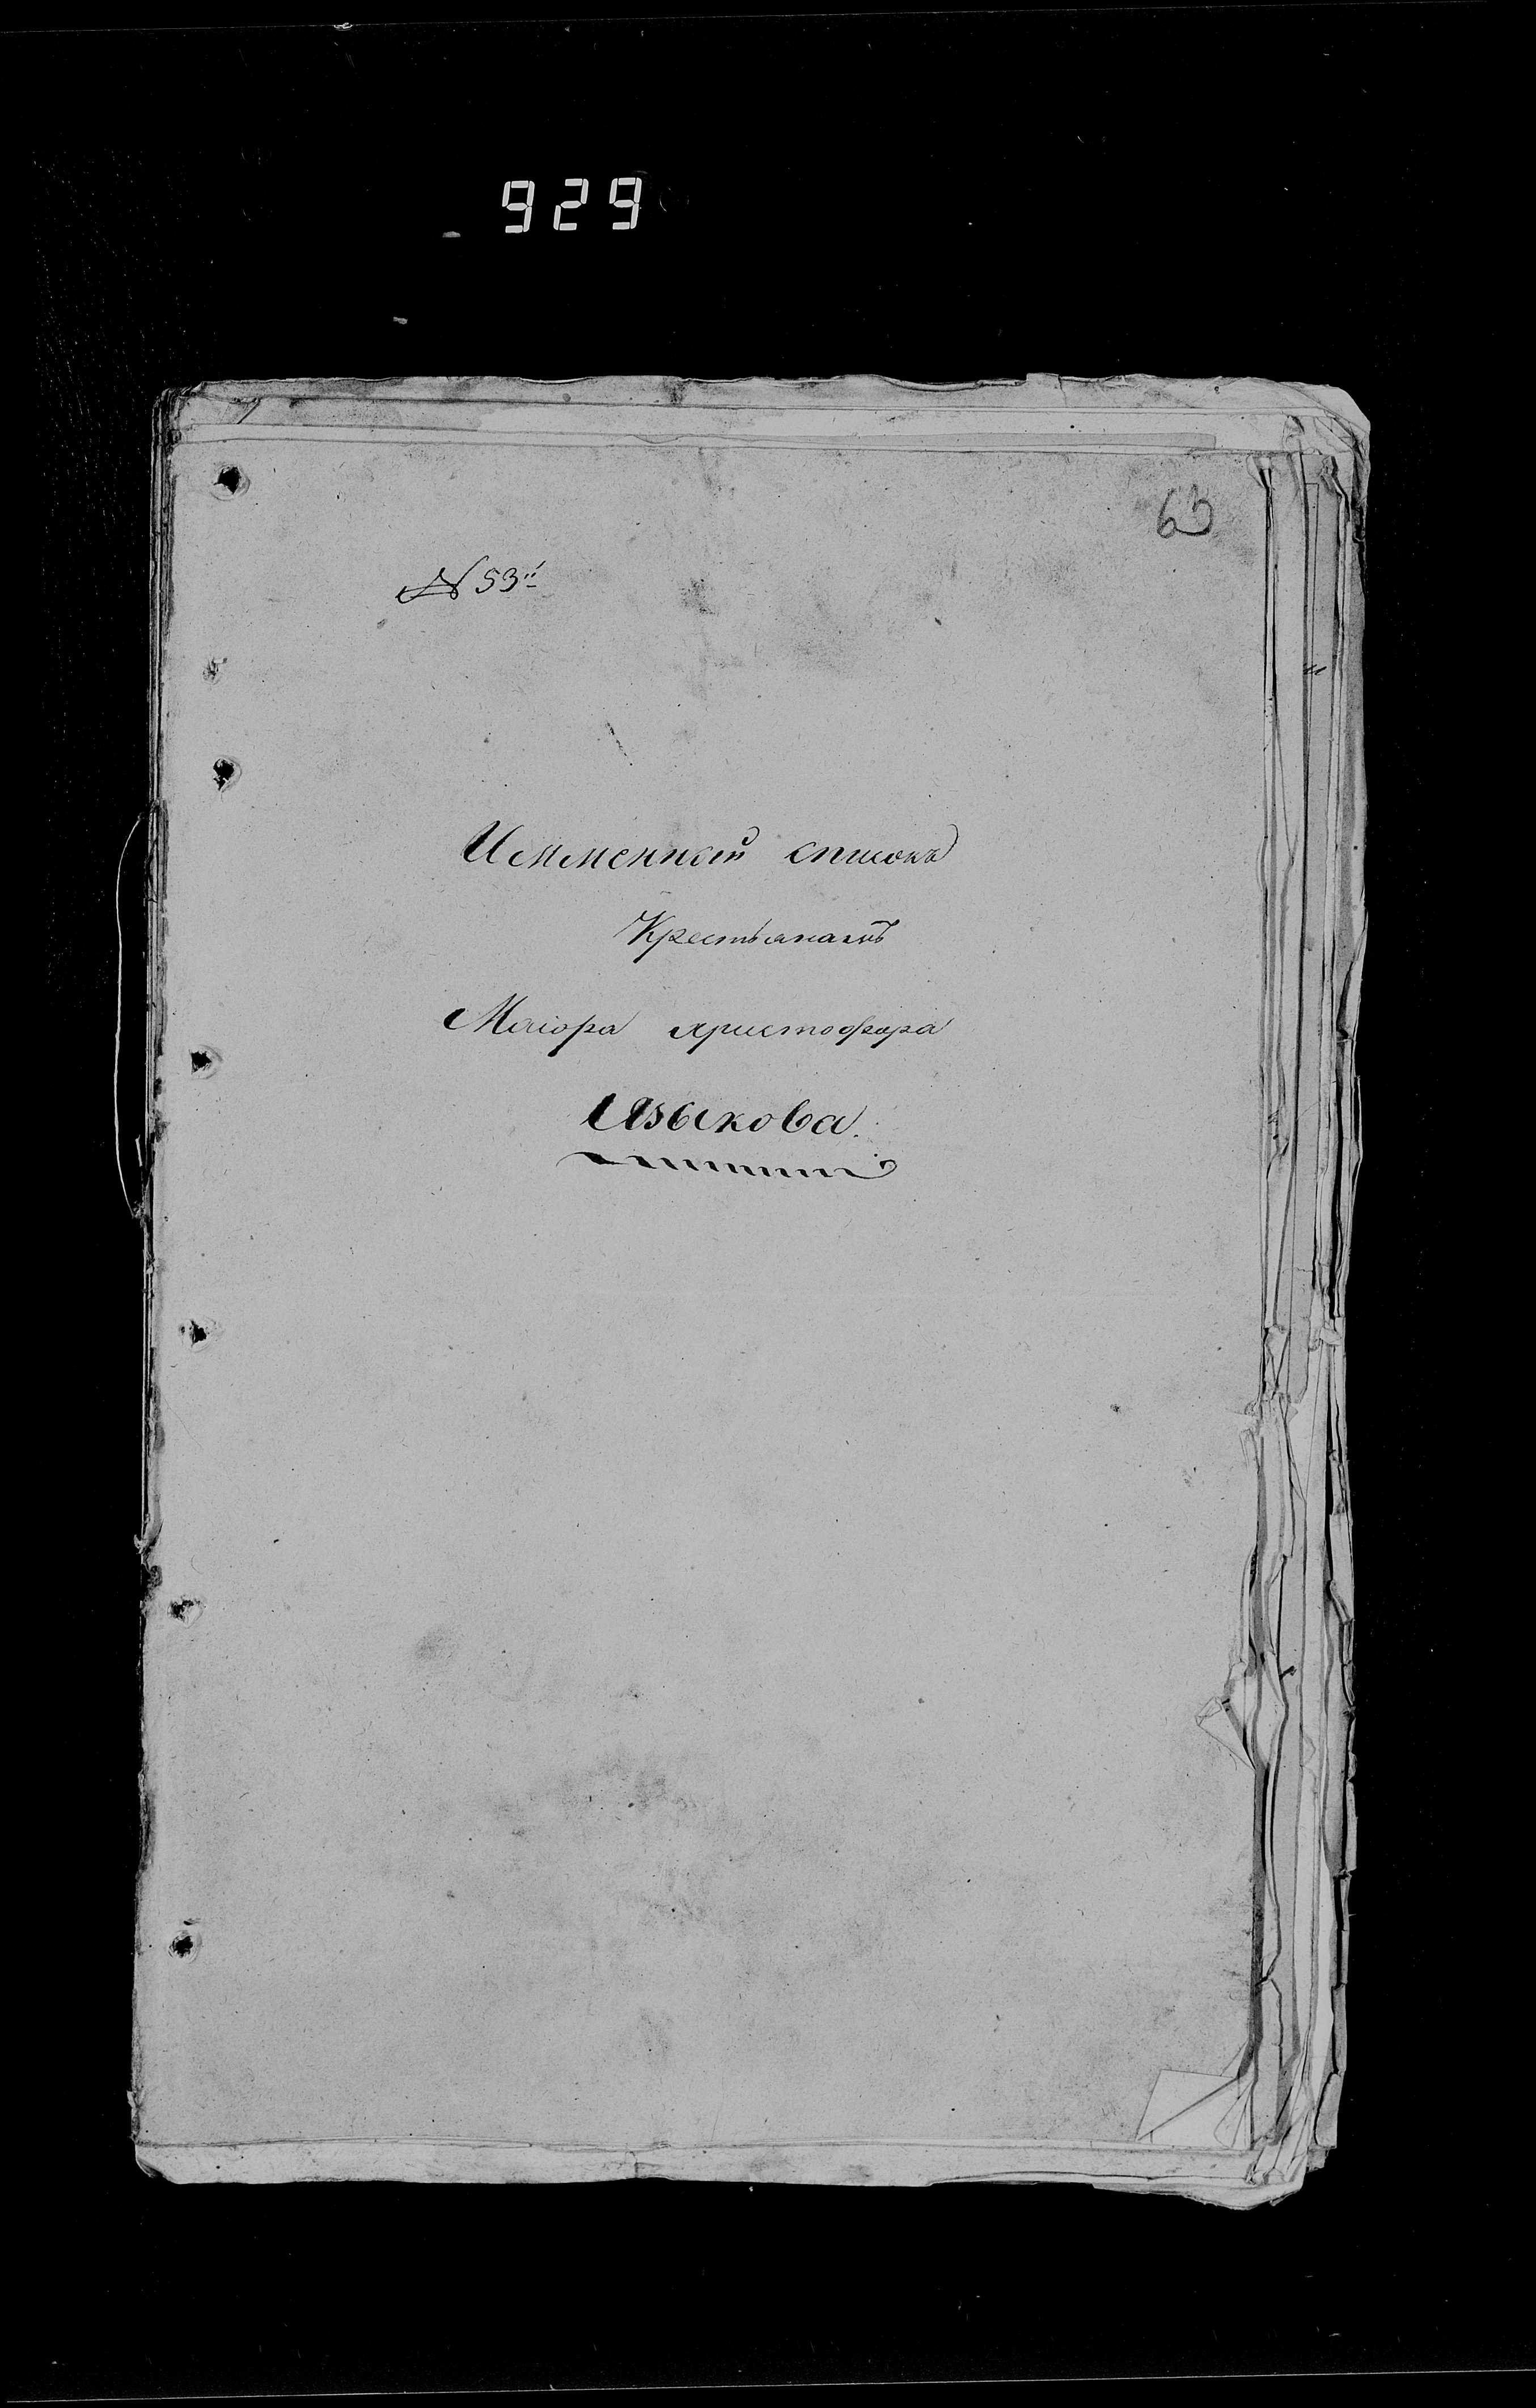 929
63
№ 53й
Имменной списокъ
Крестьянамъ
Маіора христофора
Языкова.